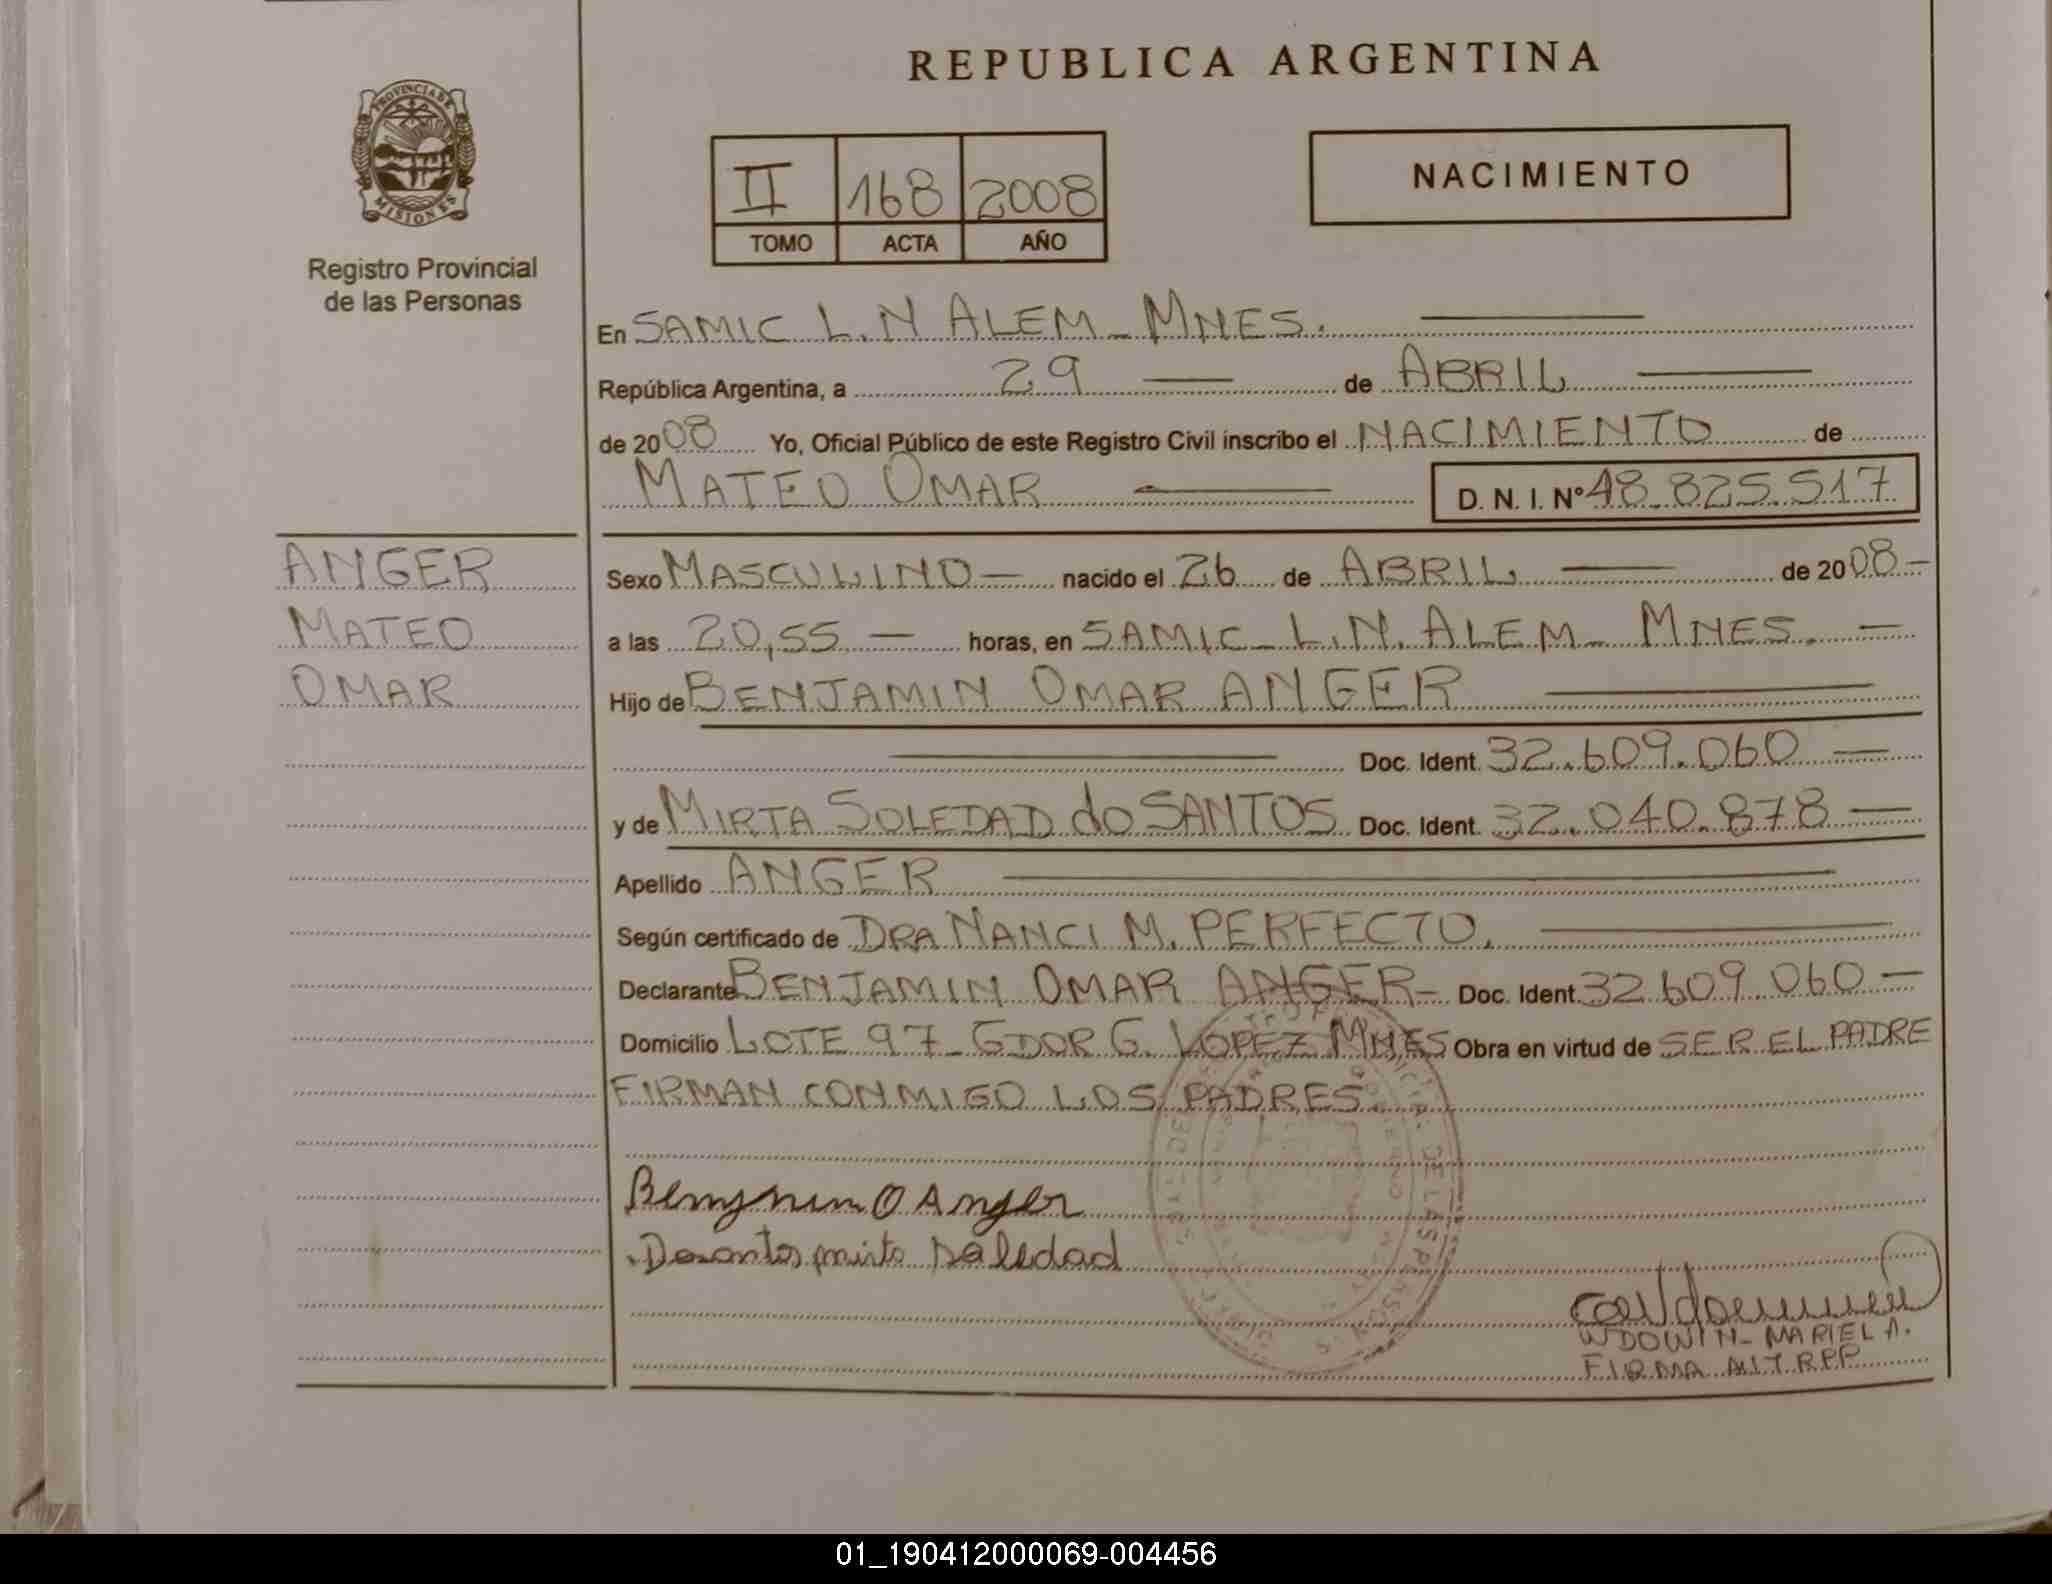 REPUBLICA ARGENTINA
PROVINCIA DE
MISIONES
Registro Provincial
de las Personas
II 168 2008
TOMO ACTA AÑO
NACIMIENTO
En SAMIC L.N ALEM - MNES.
República Argentina, a 29 de ABRIL
de 2008 Yo, Oficial Público de este Registro Civil inscribo el NACIMIENTO de
MATEO OMAR D. N. I. Nº 48.825.517
ANGER
MATEO
OMAR
Sexo MASCULINO nacido el 26 de ABRIL de 2008
a las 20,55 horas, en SAMIC - L.N. ALEM - MNES.
Hijo de BENJAMIN OMAR ANGER
Doc. Ident. 32.609.060
y de MIRTA SOLEDAD do SANTOS Doc. Ident. 32.040.878
Apellido ANGER
Según certificado de DRA NANCI M. PERFECTO.
Declarante BENJAMIN OMAR ANGER - Doc. Ident. 32.609.060
Domicilio LOTE 97 - GDOR G. LOPEZ MNES Obra en virtud de SER EL PADRE
FIRMAN CONMIGO LOS PADRES
Benjamin O Anger
Dosantos mirta soledad
WDOWIN - MARIEL A.
FIRMA AUT. R.P.P.
01_190412000069-004456